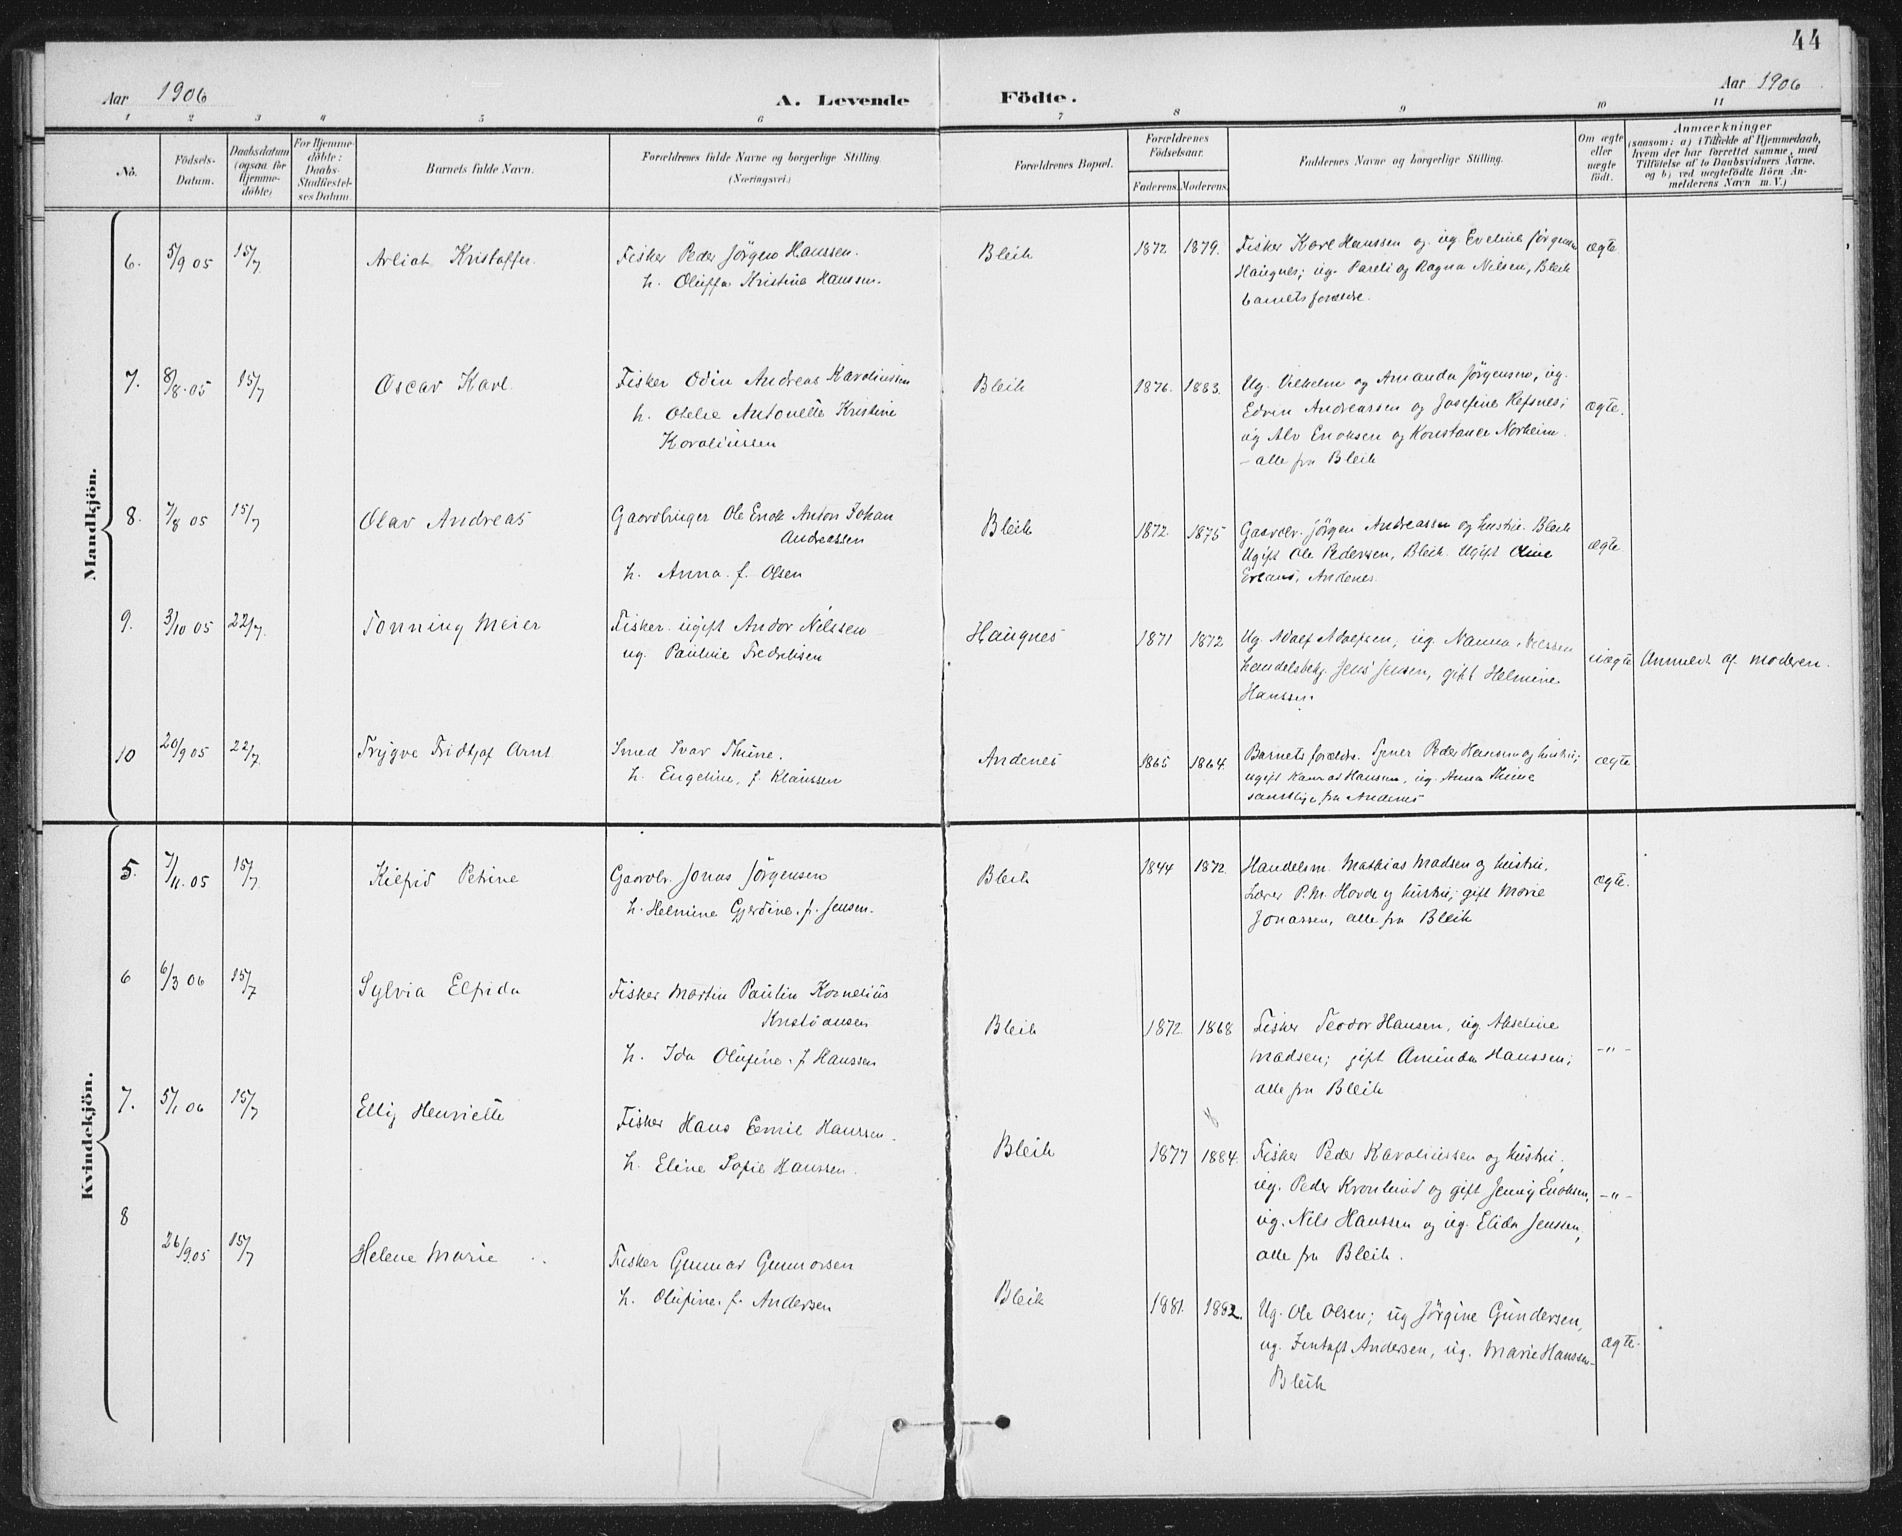 44
Aar 1906
A. Levende Födte.
Aar 1906
1 2 3 4 5 6 7 8 9 10 11
No.
Födsels-
Datum.
Daabsdatum
(ogsaa for
Hjemme-
döbte)
For Hjemme-
döbte:
Daabs-
Stadfæstel-
ses Datum
Barnets fulde Navn.
Forældrenes fulde Navne og borgerlige Stilling.
(Næringsvei.)
Forældrenes Bopæl.
Forældrenes
Födselsaar.
Faderens. Moderens.
Faddernes Navne og borgerlige Stilling.
Om ægte
eller
uægte
födt.
Anmærkninger
(saasom: a) i Tilfælde af Hjemmedaab,
hvem der har forrettet samme, med
Tilföielse af to Daabsvidners Navne.
og b) ved uægtefödte Börn An-
melderens Navn m. V.)
Mandkjön.
6. 5/9 05 15/7 Arliot Kristoffer. Fisker Peder Jörgen Hanssen. Bleik 1872 1879. Fisker Karl Hanssen og ug. Eveline Jörgensen ægte
h. Oluffa Kristine Hanssen. Haugnes; ug. Pareli og Ragna Nilsen, Bleik
barnets forældre.
7. 8/8.05 15/7 Oscar Karl. Fisker Odin Andreas Karoliussen Bleik 1876. 1883. Ug. Vilhelm og Amanda Jörgensen, ug.
h. Otelie Antonette Kristine Edvin Andreassen og Josefine Refsnes; ægte.
Karoliussen ug Alv Enoksen og Konstance Norheim.
- alle fra Bleik
8. 7/8 05 15/7 Olav Andreas Gaardbruger Ole Enok Anton Johan Bleik 1872. 1875 Gaardbr. Jörgen Andreassen og hustru. Bleik
Andreassen Ugift Ole Pedersen, Bleik. Ugift Oline ægte
h. Anna f. Olsen Andenes.
9. 3/10 05 22/7. Tonning Meier Fisker ugift Andor Nilssen Haugnes 1871 1872 Ug. Adolf Adolfsen, ug. Nanna Nilssen
ug. Pauline Fredriksen handelsbetj. Jens Jensen, gift Helmine uægte Anmeldt af moderen.
Hanssen
10 20/9 05 22/7 Trygve Fridtjof Arnt Smed Ivar Thune. Andenes 1865 1864. Barnets forældre. Peder Hansen og hustru; ægte
h. Engeline, f. Klaussen ugift Konrad Hansen, ug. Anna Thune
samtlige fra Andenes
Kvindekjön.
5. 7/11.05 15/7. Kilfrid Petrine Gaardbr. Jonas Jörgensen Bleik 1844 1872. Handelsm. Mathias Madsen og hustru. ægte.
h. Helmine Gjerdine f. Jensen. Lærer P.M. Hovde og hustru; gift Marie
Jonassen, alle fra Bleik
6 6/3 06 15/7 Sylvia Elfrida Fisker Martin Paulin Kornelius
Kristiansen Bleik 1872. 1868 Fisker Teodor Hansen, ug. Akseline
h. Ida Olufine f. Hanssen Madsen; gift Aminda Hanssen; -"-
alle fra Bleik
7. 5/1 06 15/7 Elly Henriette Fisker Hans Eemil Hanssen. Bleik 1877 1884. Fisker Peder Karoliussen og hustru,
h. Eline Sofie Hanssen. ug. Peder Kronlund og gift Jenny Enoksen, -"-
ug. Nils Hanssen og ug. Elida Jenssen,
alle fra Bleik.
8 26/9 05 15/7 Helene Marie Fisker Gunnar Gunnarsen
h. Olufine f. Andersen Bleik 1881. 1882. Ug. Ole Olsen; ug Jörgine Gundersen,
ug. Andersen, ug. Marie Hanssen- ægte.
Bleik